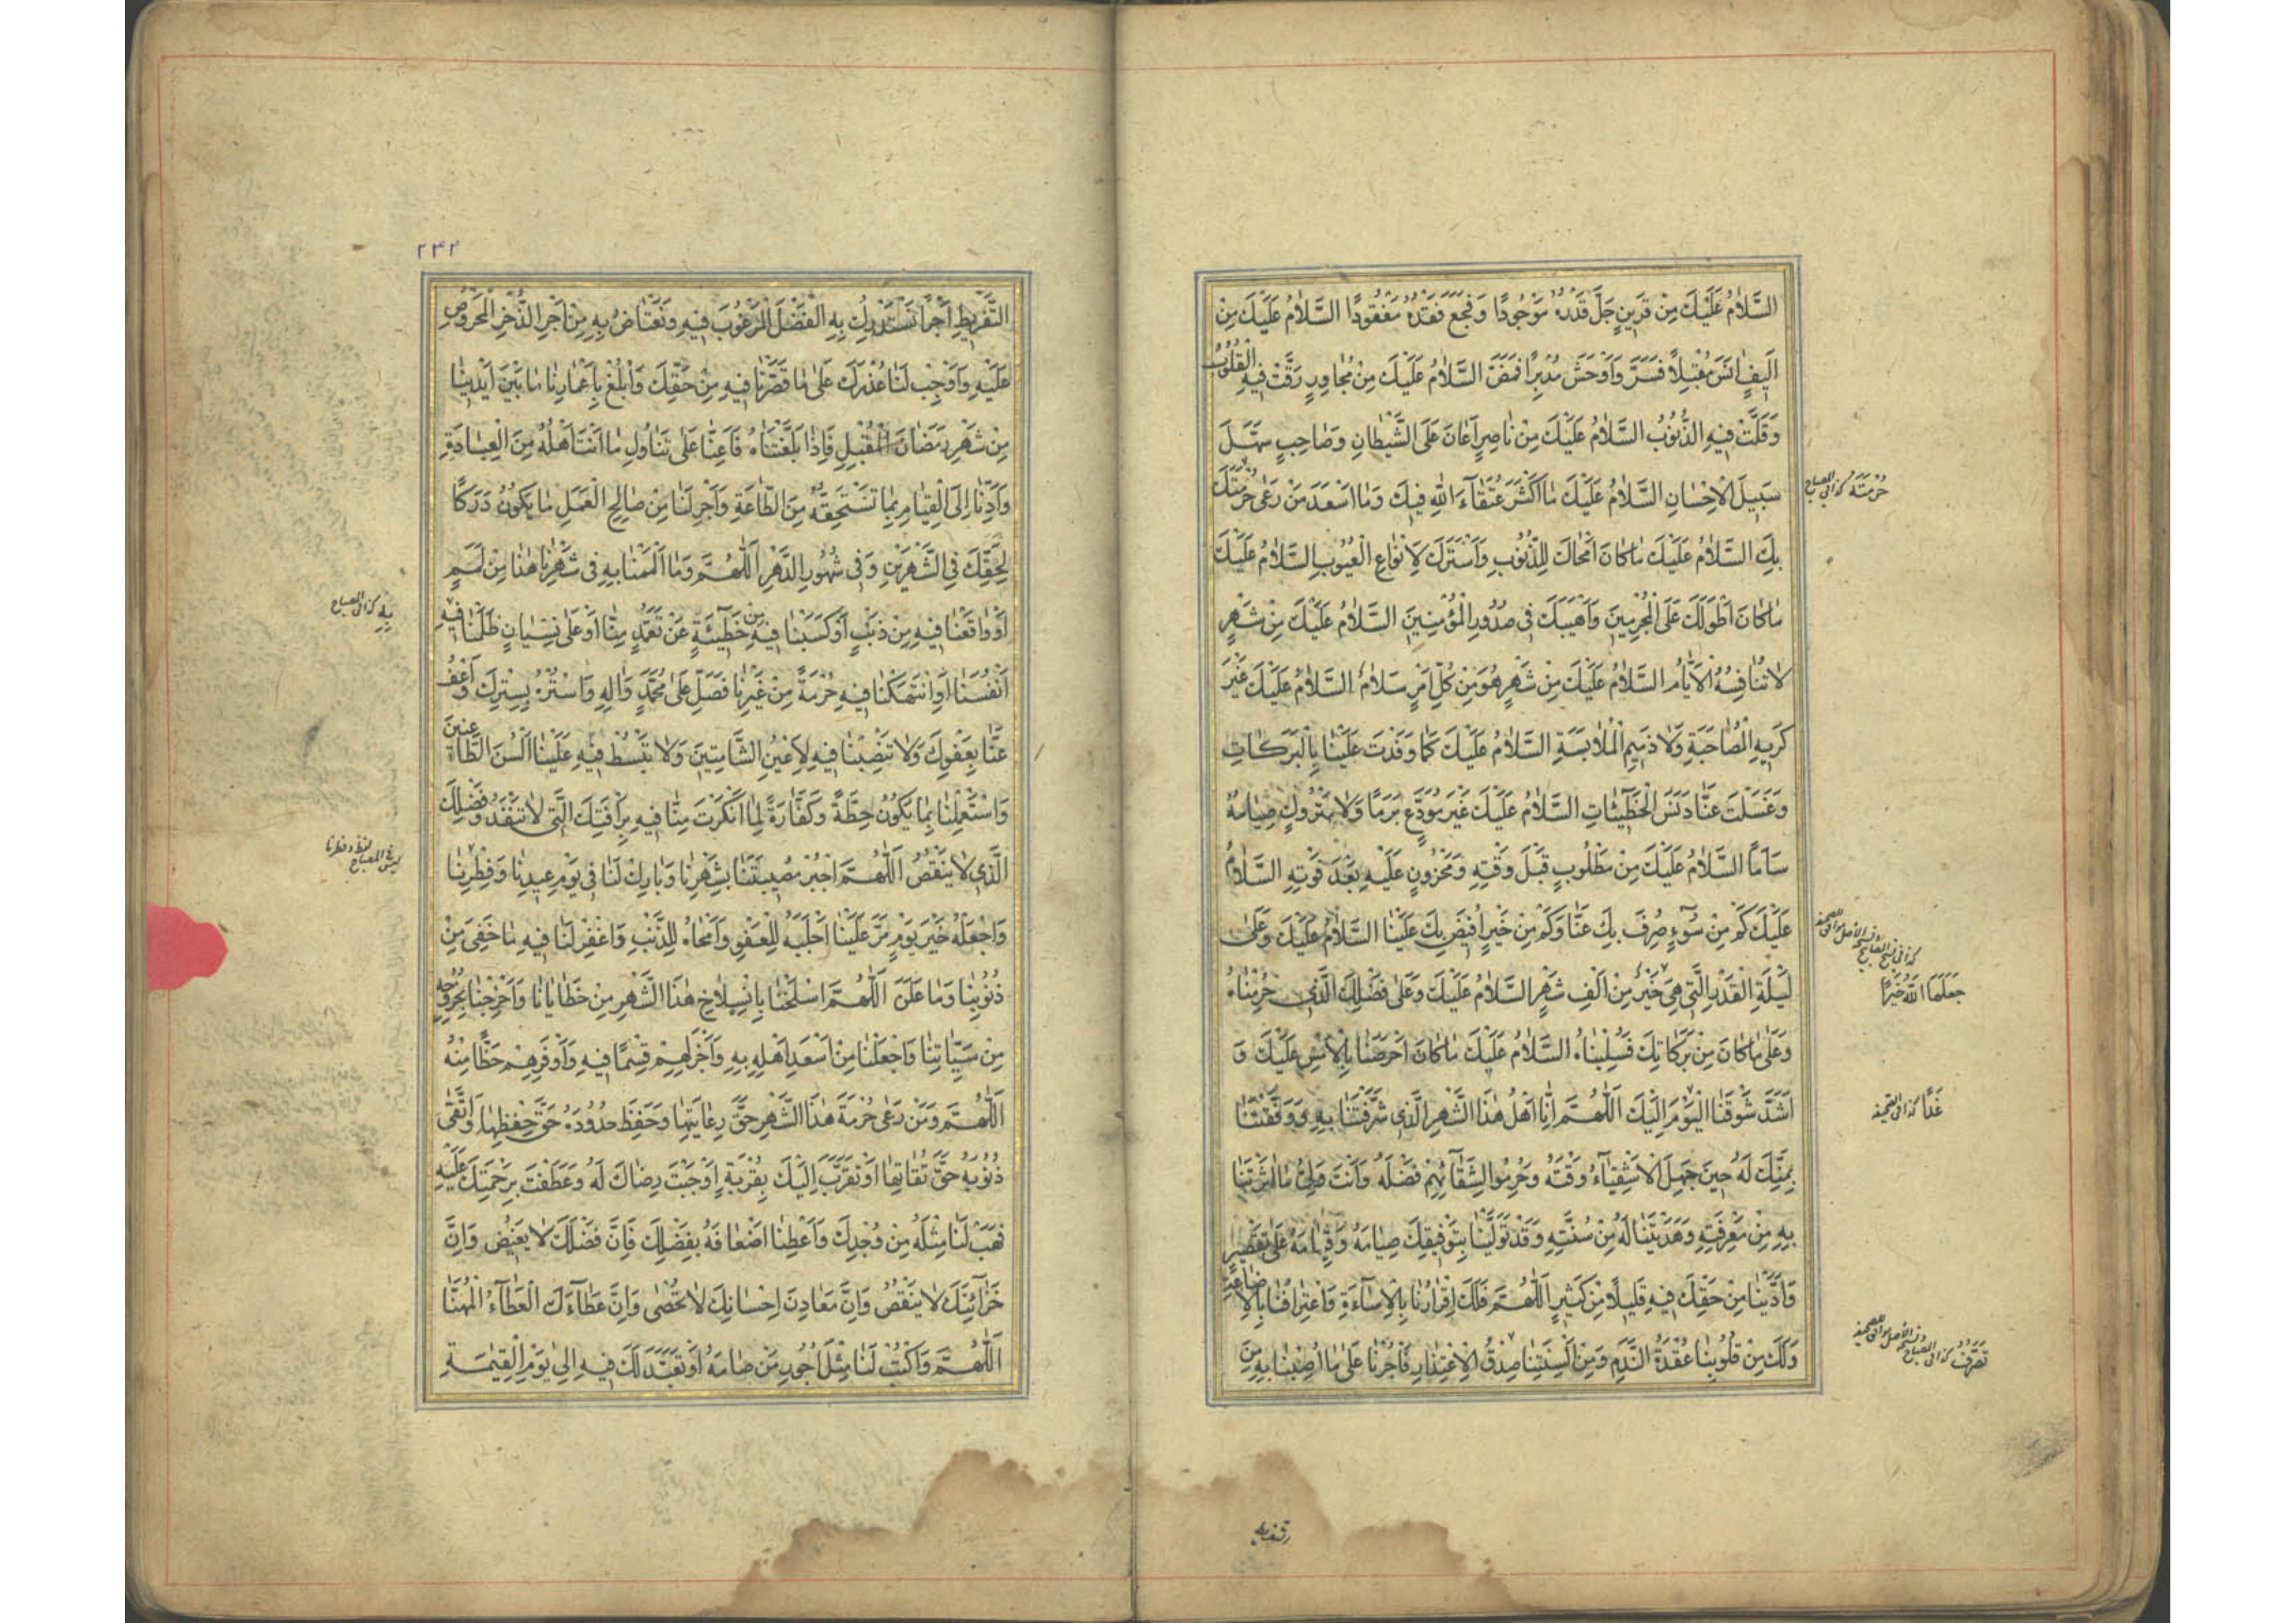 السَّلَامُ عَلَيْكَ مِنْ قَرِينٍ جَلَّ قَدْرُهُ مَوْجُودًا وَفَجَعَ فَقْدُهُ مَفْقُودًا السَّلَامُ عَلَيْكَ مِنْ
اَلِيفٍ اٰنَسَ مُقْبِلًا فَسَرَّ وَاَوْحَشَ مُدْبِرًا فَمَضَّ السَّلَامُ عَلَيْكَ مِنْ مُجَاوِرٍ رَقَّتْ فِيهِ الْقُلُوبُ
وَقَلَّتْ فِيهِ الذُّنُوبُ السَّلَامُ عَلَيْكَ مِنْ نَاصِرٍ اَعَانَ عَلَى الشَّيْطَانِ وَصَاحِبٍ سَهَّلَ
سَبِيلَ الْاِحْسَانِ السَّلَامُ عَلَيْكَ مَا اَكْثَرَ عُتَقَآءَ اللهِ فِيكَ وَمَا اَسْعَدَ مَنْ رَعٰى حُرْمَتَكَ
حُرْمَتَهُ كذا فى المصباح
بِكَ السَّلَامُ عَلَيْكَ مَا كَانَ اَمْحَاكَ لِلذُّنُوبِ وَاَسْتَرَكَ لِاَنْوَاعِ الْعُيُوبِ السَّلَامُ عَلَيْكَ
مَا كَانَ اَطْوَلَكَ عَلَى الْمُجْرِمِينَ وَاَهْيَبَكَ فِى صُدُورِ الْمُؤْمِنِينَ السَّلَامُ عَلَيْكَ مِنْ شَهْرٍ
لَا تُنَافِسُهُ الْاَيَّامُ السَّلَامُ عَلَيْكَ مِنْ شَهْرٍ هُوَ مِنْ كُلِّ اَمْرٍ سَلَامٌ السَّلَامُ عَلَيْكَ غَيْرَ
كَرِيهِ الْمُصَاحَبَةِ وَلَا ذَمِيمِ الْمُلَابَسَةِ السَّلَامُ عَلَيْكَ كَمَا وَفَدْتَ عَلَيْنَا بِالْبَرَكَاتِ
وَغَسَلْتَ عَنَّا دَنَسَ الْخَطِيٓئَاتِ السَّلَامُ عَلَيْكَ غَيْرَ مُوَدَّعٍ بَرَمًا وَلَا مَتْرُوكٍ صِيَامُهُ
سَاَمًا السَّلَامُ عَلَيْكَ مِنْ مَطْلُوبٍ قَبْلَ وَقْتِهِ وَمَحْزُونٍ عَلَيْهِ بَعْدَ فَوْتِهِ السَّلَامُ
عَلَيْكَ كَمْ مِنْ سُوٓءٍ صُرِفَ بِكَ عَنَّا وَكَمْ مِنْ خَيْرٍ اُفِيضَ بِكَ عَلَيْنَا السَّلَامُ عَلَيْكَ وَعَلٰى
لَيْلَةِ الْقَدْرِ الَّتِى هِىَ خَيْرٌ مِنْ اَلْفِ شَهْرٍ السَّلَامُ عَلَيْكَ وَعَلٰى فَضْلِكَ الَّذِى حُرِمْنَاهُ
جَعَلَهَا اللهُ خَيْرًا
وَعَلٰى مَا كَانَ مِنْ بَرَكَاتِكَ فَسُلِبْنَاهُ السَّلَامُ عَلَيْكَ مَا كَانَ اَحْرَصَنَا بِالْاَمْسِ عَلَيْكَ وَ
اَشَدَّ شَوْقَنَا الْيَوْمَ اِلَيْكَ اَللّٰهُمَّ اِنَّا اَهْلُ هٰذَا الشَّهْرِ الَّذِى شَرَّفْتَنَا بِهِ وَوَفَّقْتَنَا
غَدًا كذا فى الصحيفة
بِمَنِّكَ لَهُ حِينَ جَهِلَ الْاَشْقِيَآءُ وَقْتَهُ وَحُرِمُوا لِشَقَآئِهِمْ فَضْلَهُ وَاَنْتَ وَلِىُّ مَا اٰثَرْتَنَا
بِهِ مِنْ مَعْرِفَتِهِ وَهَدَيْتَنَا لَهُ مِنْ سُنَّتِهِ وَقَدْ تَوَلَّيْنَا بِتَوْفِيقِكَ صِيَامَهُ وَقِيَامَهُ عَلٰى تَقْصِيرٍ
وَاَدَّيْنَا مِنْ حَقِّكَ فِيهِ قَلِيلًا مِنْ كَثِيرٍ اَللّٰهُمَّ فَلَكَ اِقْرَارُنَا بِالْاِسَآءَةِ وَاعْتِرَافُنَا بِالْاِضَاعَةِ
وَلَكَ مِنْ قُلُوبِنَا عُقْدَةُ النَّدَمِ وَمِنْ اَلْسِنَتِنَا صِدْقُ الْاِعْتِذَارِ فَأْجُرْنَا عَلٰى مَا اُصِبْنَا بِهِ مِنَ
۲۴۲
التَّفْرِيطِ اَجْرًا نَسْتَدْرِكُ بِهِ الْفَضْلَ الْمَرْغُوبَ فِيهِ وَنَعْتَاضُ بِهِ مِنْ اَجْرِ الذُّخْرِ الْمَحْرُوصِ
عَلَيْهِ وَاَوْجِبْ لَنَا عُذْرَكَ عَلٰى مَا قَصَّرْنَا فِيهِ مِنْ حَقِّكَ وَابْلُغْ بِاَعْمَارِنَا مَا بَيْنَ اَيْدِينَا
مِنْ شَهْرِ رَمَضَانَ الْمُقْبِلِ فَاِذَا بَلَّغْتَنَاهُ فَاَعِنَّا عَلٰى تَنَاوُلِ مَا اَنْتَ اَهْلُهُ مِنَ الْعِبَادَةِ
وَاَدِّنَا اِلَى الْقِيَامِ بِمَا تَسْتَحِقُّهُ مِنَ الطَّاعَةِ وَاَجْرِ لَنَا مِنْ صَالِحِ الْعَمَلِ مَا يَكُونُ دَرَكًا
لِحَقِّكَ فِى الشَّهْرَيْنِ وَفِى شُهُورِ الدَّهْرِ اَللّٰهُمَّ وَمَا اَلْمَمْنَا بِهِ فِى شَهْرِنَا هٰذَا مِنْ لَمَمٍ
اَوْ وَاقَعْنَا فِيهِ مِنْ ذَنْبٍ اَوْ كَسَبْنَا فِيهِ مِنْ خَطِيٓئَةٍ عَنْ تَعَمُّدٍ مِنَّا اَوْ عَلٰى نِسْيَانٍ ظَلَمْنَا فِيهِ
بِهِ كذا فى المصباح
اَنْفُسَنَا اَوِ انْتَهَكْنَا فِيهِ حُرْمَةً مِنْ غَيْرِنَا فَصَلِّ عَلٰى مُحَمَّدٍ وَاٰلِهِ وَاسْتُرْنَا بِسِتْرِكَ وَاعْفُ
عَنَّا بِعَفْوِكَ وَلَا تَنْصِبْنَا فِيهِ لِاَعْيُنِ الشَّامِتِينَ وَلَا تَبْسُطْ فِيهِ عَلَيْنَا اَلْسُنَ الطَّاعِنِينَ
وَاسْتَعْمِلْنَا بِمَا يَكُونُ حِطَّةً وَكَفَّارَةً لِمَا اَنْكَرْتَ مِنَّا فِيهِ بِرَأْفَتِكَ الَّتِى لَا تَنْفَدُ وَفَضْلِكَ
الَّذِى لَا يَنْقُصُ اَللّٰهُمَّ اجْبُرْ مُصِيبَتَنَا بِشَهْرِنَا وَبَارِكْ لَنَا فِى يَوْمِ عِيدِنَا وَفِطْرِنَا
لفظ وفطرنا
ليس فى المصباح
وَاجْعَلْهُ خَيْرَ يَوْمٍ مَرَّ عَلَيْنَا اَجْلَبَهُ لِلْعَفْوِ وَاَمْحَاهُ لِلذَّنْبِ وَاغْفِرْ لَنَا فِيهِ مَا خَفِىَ مِنْ
ذُنُوبِنَا وَمَا عَلَنَ اَللّٰهُمَّ اسْلَخْنَا بِانْسِلَاخِ هٰذَا الشَّهْرِ مِنْ خَطَايَانَا وَاَخْرِجْنَا بِخُرُوجِهِ
مِنْ سَيِّاٰتِنَا وَاجْعَلْنَا مِنْ اَسْعَدِ اَهْلِهِ بِهِ وَاَجْزَلِهِمْ قِسْمًا فِيهِ وَاَوْفَرِهِمْ حَظًّا مِنْهُ
اَللّٰهُمَّ وَمَنْ رَعٰى حُرْمَةَ هٰذَا الشَّهْرِ حَقَّ رِعَايَتِهَا وَحَفِظَ حُدُودَهُ حَقَّ حِفْظِهَا وَاتَّقٰى
ذُنُوبَهُ حَقَّ تُقَاتِهَا اَوْ تَقَرَّبَ اِلَيْكَ بِقُرْبَةٍ اَوْجَبَتْ رِضَاكَ لَهُ وَعَطَفَتْ بِرَحْمَتِكَ عَلَيْهِ
فَهَبْ لَنَا مِثْلَهُ مِنْ وُجْدِكَ وَاَعْطِنَا اَضْعَافَهُ بِفَضْلِكَ فَاِنَّ فَضْلَكَ لَا يَغِيضُ وَاِنَّ
خَزَآئِنَكَ لَا يَنْقُصُ وَاِنَّ مَعَادِنَ اِحْسَانِكَ لَا تُحْصٰى وَاِنَّ عَطَآءَكَ الْعَطَآءُ الْمُهَنَّا
اَللّٰهُمَّ وَاكْتُبْ لَنَا مِثْلَ اُجُورِ مَنْ صَامَهُ اَوْ تَعَبَّدَ لَكَ فِيهِ اِلٰى يَوْمِ الْقِيٰمَةِ